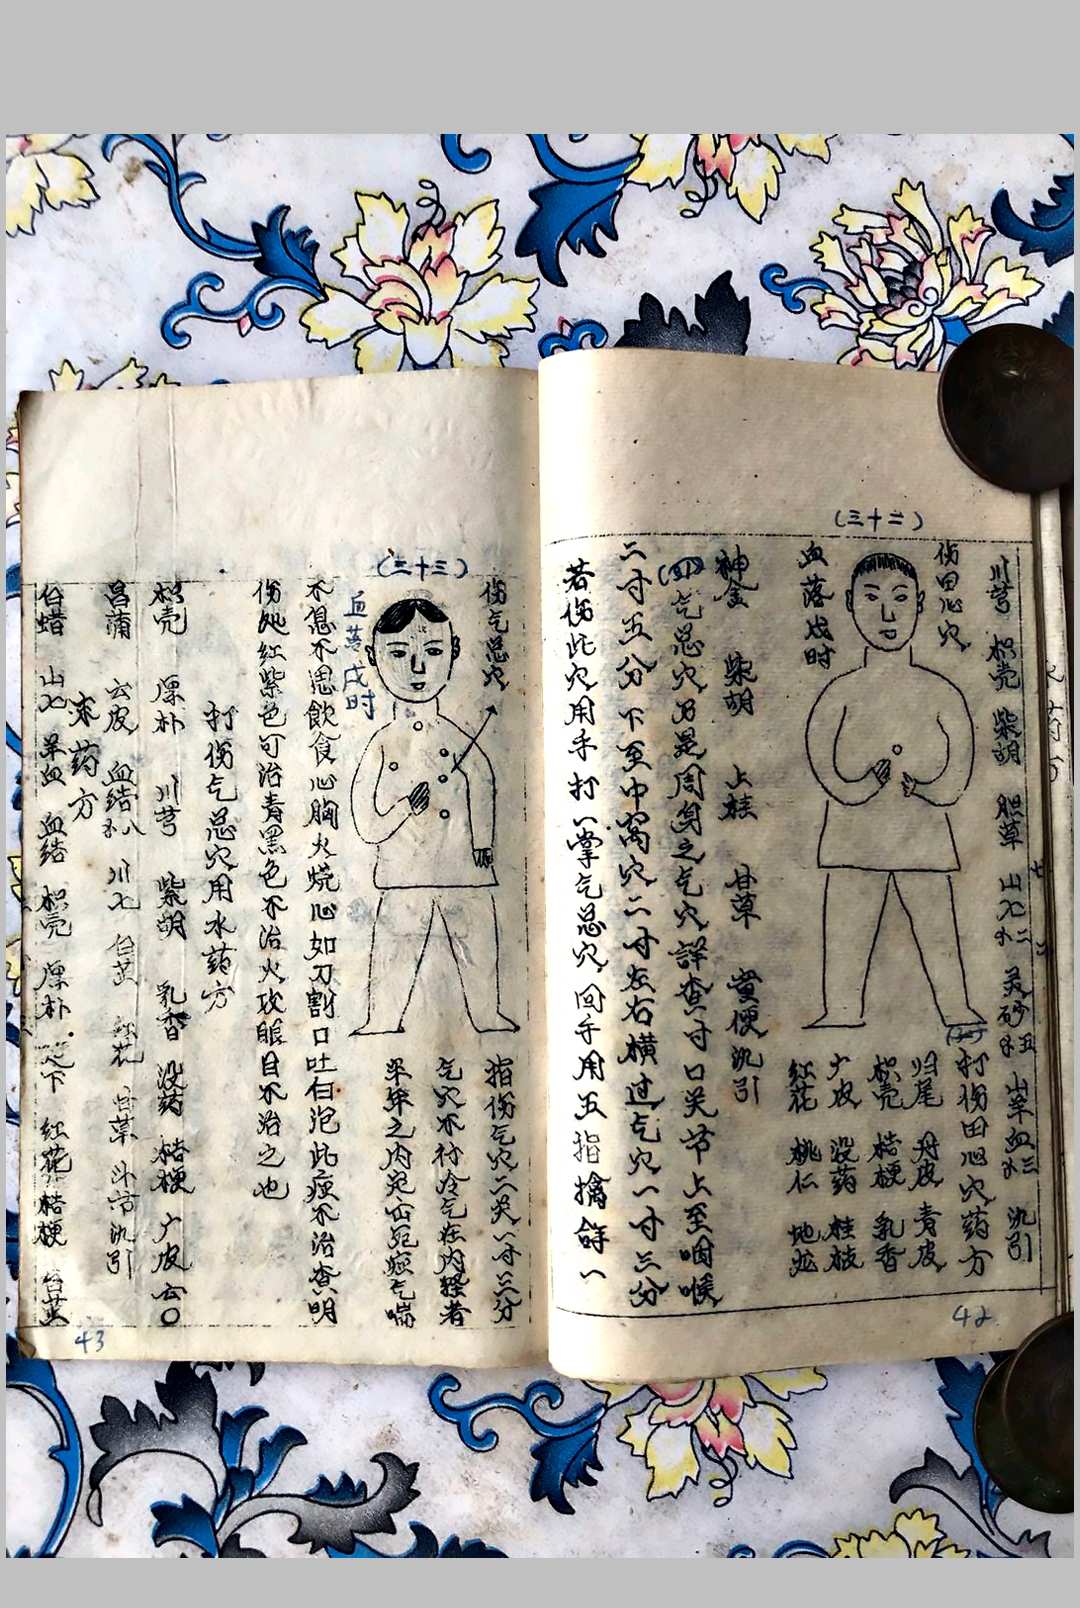 (三十二)
川芎 枳壳 柴胡 胆草 山七 灵砂 山羊血 氿引
伤田心穴
血落戌时
打伤田心穴药方
归尾 丹皮 青皮
枳壳 桔梗 乳香
广皮 没药 桂枝
红花 桃仁 地龙
神金 柴胡 上桂 甘草 童便氿引
(四)气总穴乃是周身之气穴詳查寸口关节上至咽喉
二寸五分下至中窝穴二寸左右横过气穴一寸三分
若伤此穴用手打一掌气总穴回手用五指擒
42
(三十三)
伤气总穴
血落戌时
指伤气穴二关一寸三分
气穴不行冷气在内轻者
半年之内
不息不思飲食心胸火烧心如刀割口吐白泡此症不治查明
伤处红紫色可治青黑色不治火攻眼目不治之也
打伤气总穴用水药方
枳壳 厚朴 川芎 紫胡 乳香 没药 桔梗 广皮
昌蒲 云皮 血结 川七 白芷 红花 甘草 氿引
末药方
白蜡 山七 羊血 血结 枳壳 厚朴 红花 桔梗 白芷
43